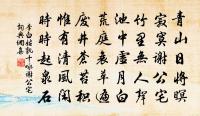 青山日將暝
寂寞謝公宅
竹里無人聲
池中虛月白
荒庭衰草遍
廢井蒼苔積
惟有清風閑
時時起泉石
李白姑孰十詠謝公宅
詞典網集